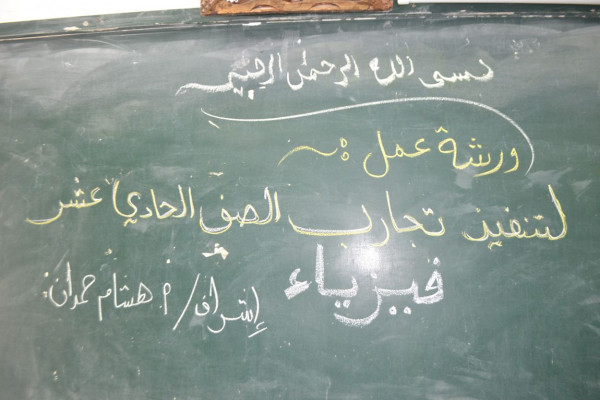 بسم الله الرحمن الرحيم
ورشة عمل :~
لتنفيذ تجارب الصف الحادي عشر
فيزياء
إشراف / م. هشام حمدان